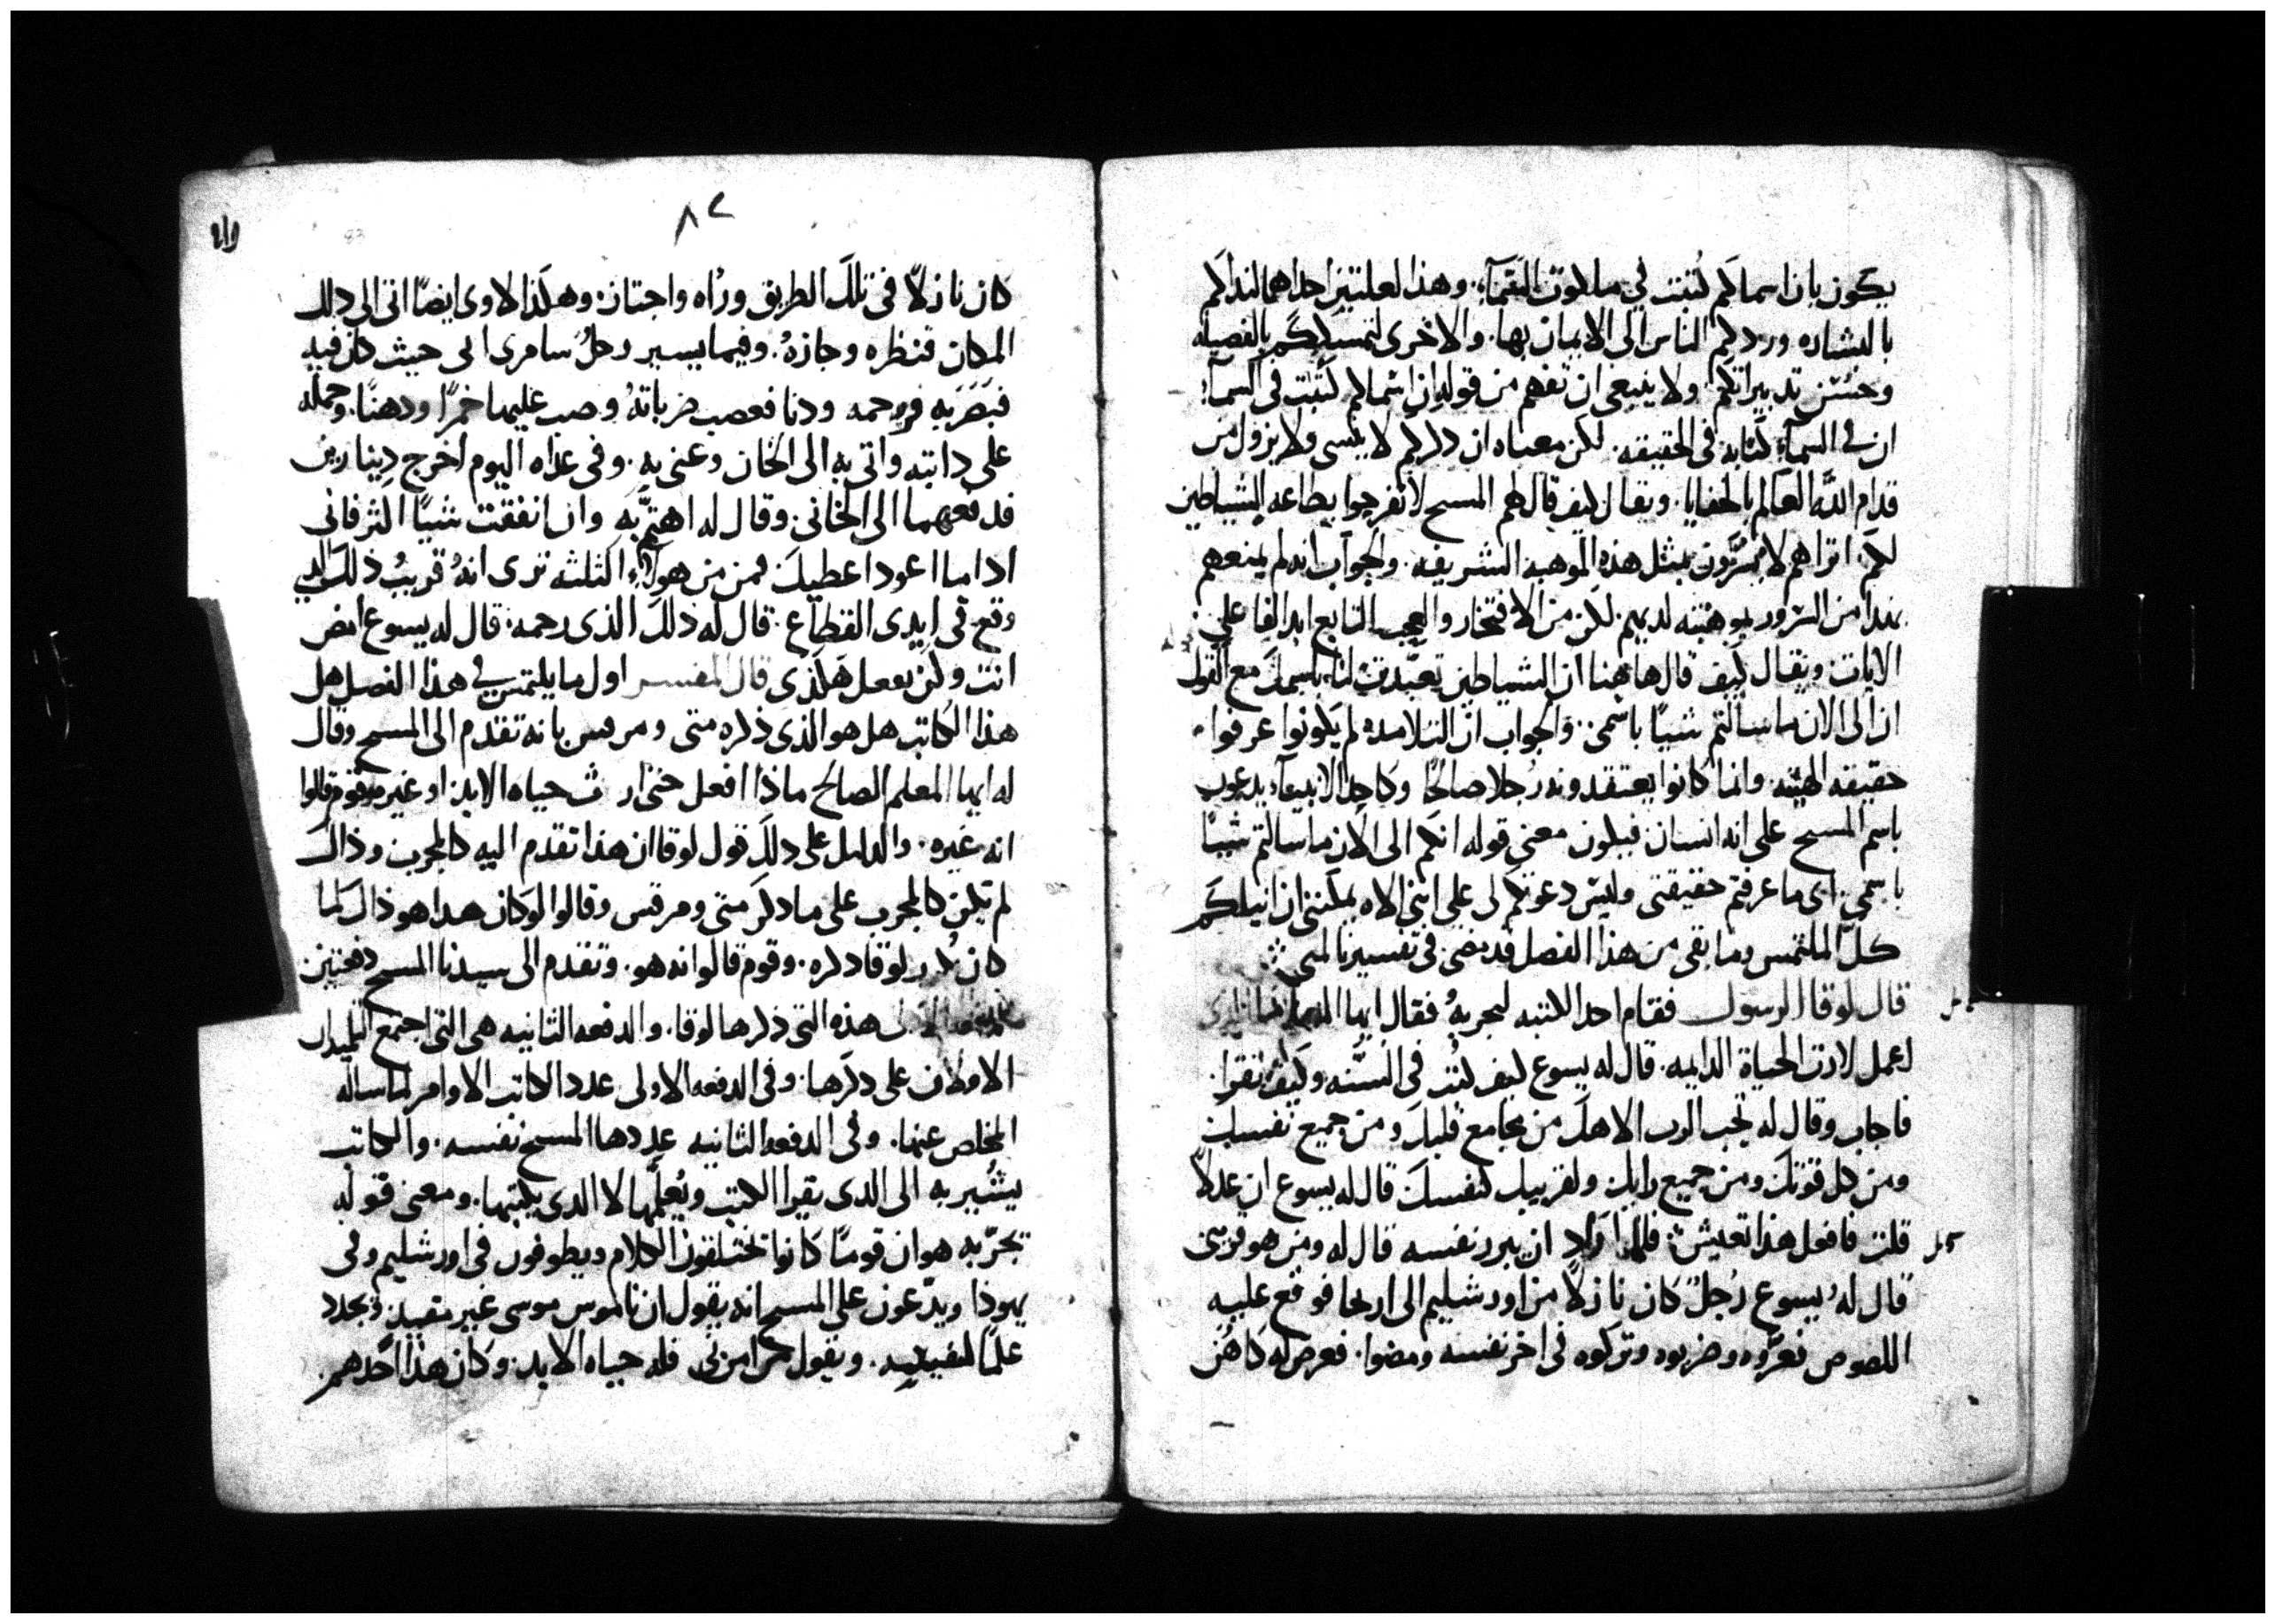 يكون بان اسماكم كتبت في ملكوت السمآء. وهذا لعلتين احداهما لنداكم
بالبشاره وردكم الناس الى الايمان بها. والاخرى لتمسككم بالفضيله
وحسن تدبيراتكم ولا ينبغى ان تفهم من قوله ان اسماكم كتبت فى السمآء
ان في السمآء كتابه فى الحقيقه. لكن معناه ان ذكركم لا ينسى ولا يزول من
قدام الله العالم بالخفايا. ويقال كيف قال لهم المسيح لا تفرحوا بطاعه الشياطين
لكم. اتراهم لا يسرون بمثل هذه الموهبه الشريفه. والجواب انه لم يمنعهم
بهذا من السرور بموهبته لديهم. لكن من الافتخار والعجب التابع ابدا لفاعلي
الايات ويقال كيف قال هاهنا ان الشياطين تعبدت لنا باسمك مع القول
ان الى الان ما سالتم شيًا باسمى. والجواب ان التلامده لم يكونوا عرفوا
حقيقه الهيته. وانما كانوا يعتقدونه رجلا صالحًا وكاحد الانبيآء يدعون
باسم المسيح على انه انسان فيكون معنى قوله انكم الى الان ما سالتم شيًا
باسمي. اى ما عرفتم حقيقتى وليس دعوتكم لى على اننى الاه يمكننى ان انيلكم
كل الملتمس وما بقى من هذا الفصل قد مضى فى تفسيرنا لمتى
قال لوقا الرسول فقام احد الكتبه ليجربهُ فقال ايها المعلم ماذا
اعمل لارث الحياة الدايمه. قال له يسوع كيف كتب فى السنه وكيف تقرا.
فاجاب وقال له تحب الرب الاهك من مجامع قلبك ومن جميع نفسك
ومن كل قوتك ومن جميع رايك. ولقريبك كنفسك قال له يسوع ان عدلاً
قلت فافعل هذا تعيش. فلما اراد ان يبرر نفسه قال له ومن هو قريبى
قال لهُ يسوع رُجلٌ كان نازلاً من اورشليم الى اريحا فوقع عليه
اللصوص فعروه وضربوه وتركوه فى اخر نفسه ومضوا. فعرض له كاهن
٨٢
83
كان نازلاً فى تلك الطريق وراه واجتاز. وهكذا لاوى ايضًا اتى الى ذلك
المكان فنظره وجازهُ. وفيما يسير رجلُ سامرى الى حيث كان فيه
فبَصَرَ به فرحمه ودنا فعصب ضرباتهُ وصب عليها خمرًا ودهنًا. وحمله
على دابته واتى به الى الخان وعنى به. وفى غداه اليوم اخرج دينارين
فدفعهما الى الخانى. وقال له اهتمَّ به وان انفقت شيًا اكثر فانى
اذا ما اعود اعطيك فمن من هولآء الثلثه ترى انهُ قريبُ ذلك الذي
وقع فى ايدى القطاع. قال له ذلك الذى رحمه. قال له يسوع امض
انت وكن تفعل هكذى قال المفسر اول ما يلتمس في هذا الفصل هل
هذا الكاتب هل هو الذى ذكره متى ومرقس بانه تقدم الى المسيح وقال
له ايها المعلم الصالح ماذا افعل حتى ارث حياه الابد او غيره فقوم قالوا
انه غيره. والدليل على ذلك قول لوقا ان هذا تقدم اليه كالمجرب وذاك
لم يكن كالمجرب على ما ذكر متى ومرقس وقالوا لو كان هذا هو ذاك لما
كان لوقا ذكره. وقوم قالوا انه هو. وتقدم الى سيدنا المسيح دفعتين
هذه التى ذكرها لوقا. والدفعه الثانيه هى التى اجتمع التلميذان
الاولان على ذكرها. وفى الدفعه الاولى عدد الكاتب الاوامر لما ساله
المخلص عنها. وفى الدفعه الثانيه عددها المسيح نفسه. والكاتب
يشُير به الى الذى يقرا الكتب ويُعلمها لا الذى يكتبها. ومعنى قوله
يجربه هو ان قومًا كانوا يختلقون الكلام ويطوفون فى اورشليم وفى
يهوذا ويدّعون على المسيح انه يقول ان ناموس موسى غير مفيد. ويجدد
علمًا لنفسه. ويقول من امن بى فله حياه الابد. وكان هذا احدهم